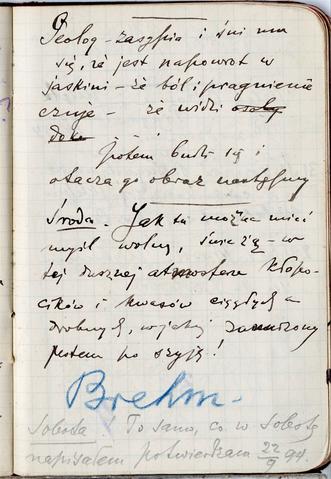 Geolog – zasypia i śni mu
się, że jest napowrot w
jaskini – że ból i pragnienie
czuje – że widzi
potem budzi się i
otacza go obraz następny
Środa. Jak tu można mieć
myśl wolną, śnieżną – w
tej dusznej atmosferze kłopo-
cików i kwasów ciągłych a
drobnych, w jakiej zanurzony
jestem po szyję!
Brehm.
Sobota! To samo, co w sobotę
napisałem potwierdzam 22/9 94.